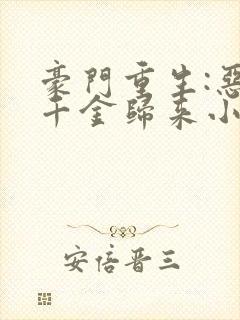 豪門重生:惡
千金歸來小
安倍晉三